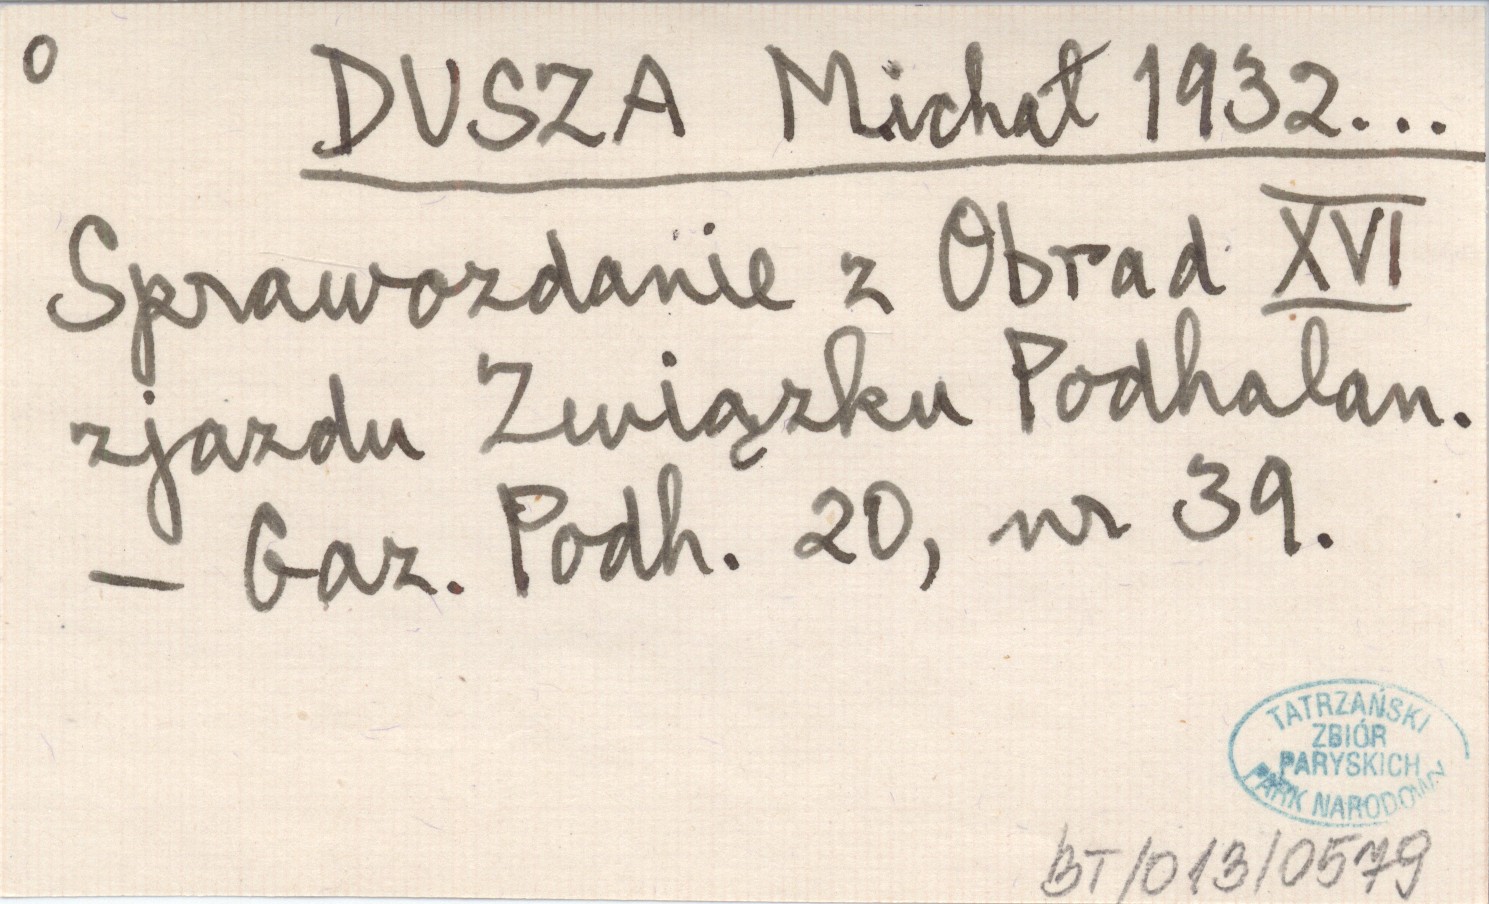 o DUSZA Michał 1932...
Sprawozdanie z Obrad XVI
zjazdu Związku Podhalan.
— Gaz. Podh. 20, nr 39.
TATRZAŃSKI
ZBIÓR
PARYSKICH
PARK NARODOWY
BT/013/0579